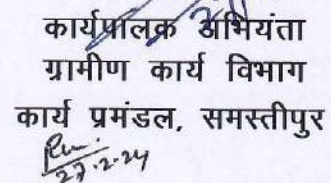 कार्यपालक अभियंता
ग्रामीण कार्य विभाग
कार्य प्रमंडल, समस्तीपुर
27.2.24